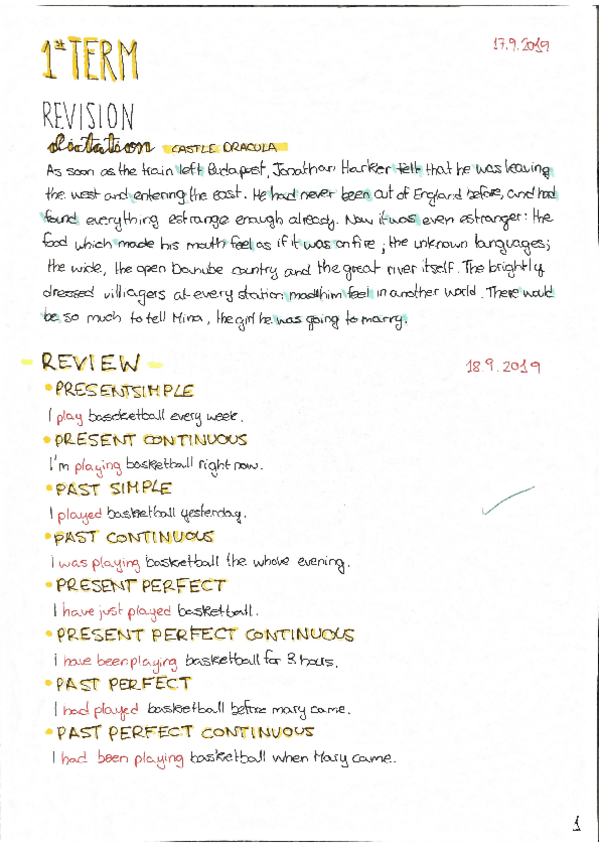 1st TERM
17.9.2019
REVISION
dictation CASTLE DRACULA
As soon as the train left Budapest, Jonathan Harker felt that he was leaving
the west and entering the east. He had never been out of England before, and had
found everything estrange enough already. Now it was even estranger: the
food which made his mouth feel as if it was on fire; the unknown languages;
the wide, the open Danube country and the great river itself. The brightly
dressed villiagers at every station made him feel in another world. There would
be so much to tell Mina, the girl he was going to marry.
- REVIEW -
18.9.2019
• PRESENT SIMPLE
I play bascketball every week.
• PRESENT CONTINUOUS
I'm playing basketball right now.
• PAST SIMPLE
I played basketball yesterday.
• PAST CONTINUOUS
I was playing basketball the whove evening.
• PRESENT PERFECT
I have just played basketball.
• PRESENT PERFECT CONTINUOUS
i have been playing basketball for 3 hours.
• PAST PERFECT
I had played basketball before mary came.
• PAST PERFECT CONTINUOUS
I had been playing basketball when Mary came.
1